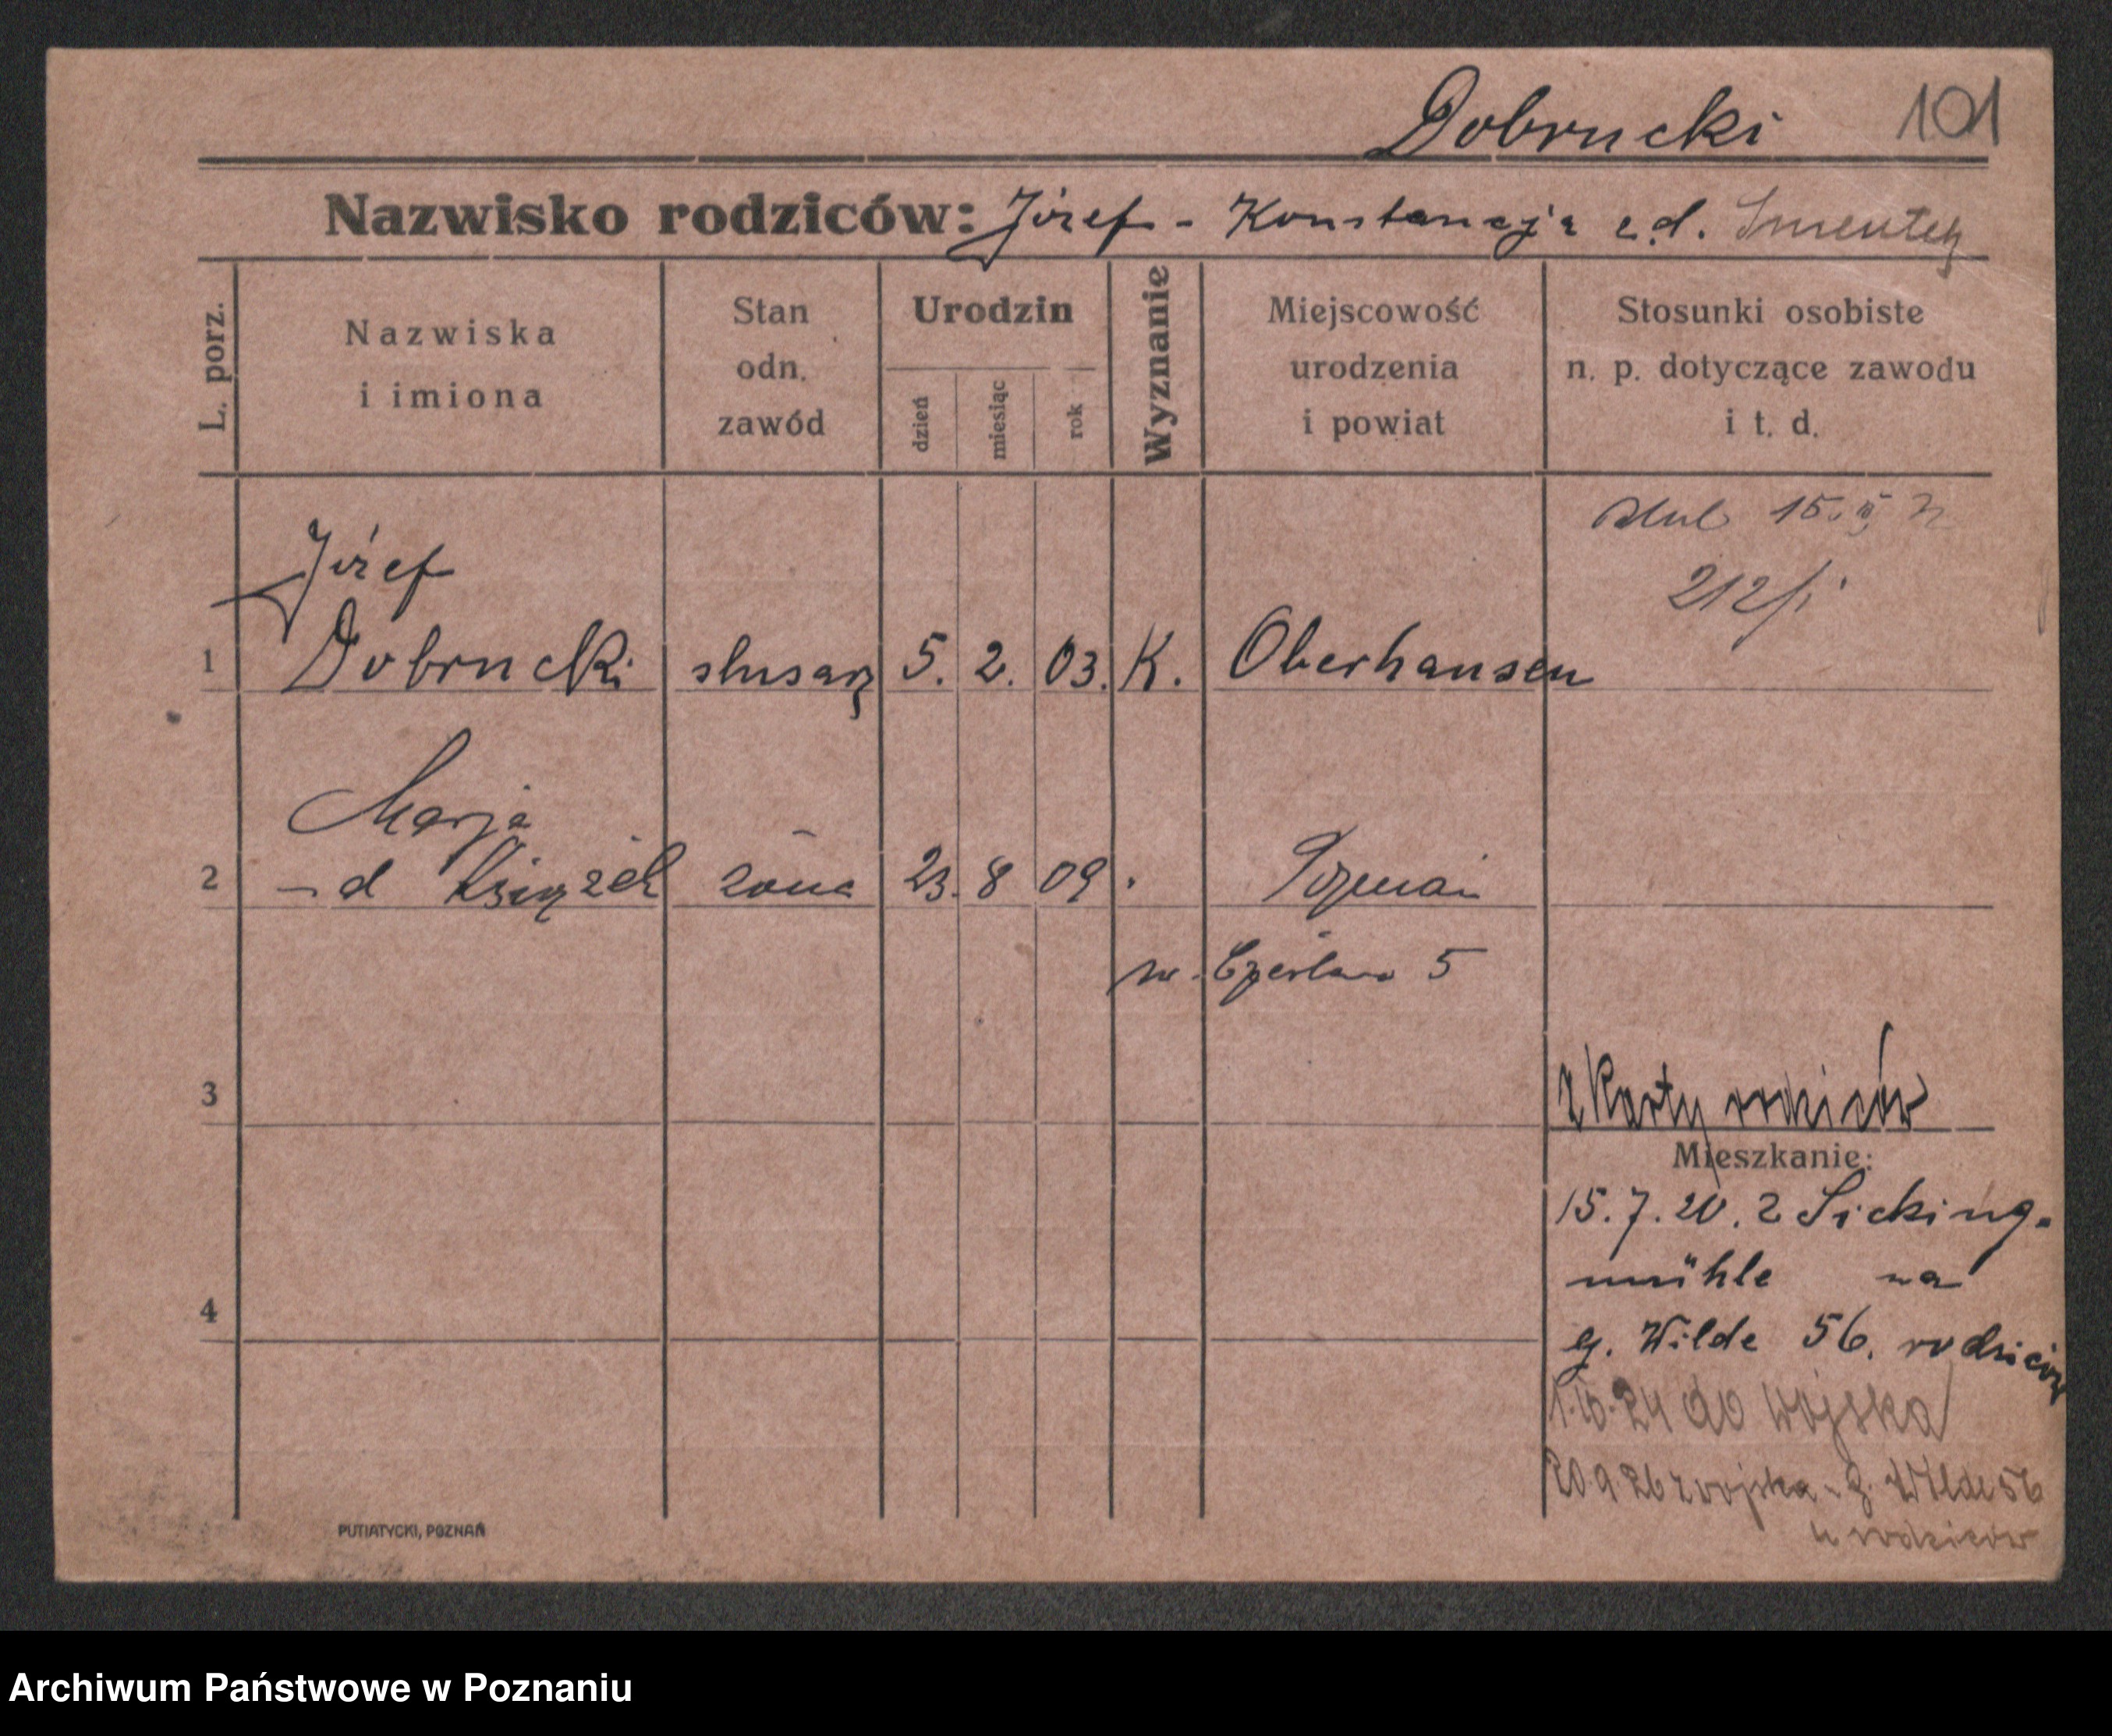 Dobrucki 101
Nazwisko rodziców: Józef - Konstancja z.d. Smentek
L. porz.
Nazwiska
i imiona
Stan
odn.
zawód
Urodzin
dzień
miesiąc
rok
Wyznanie
Miejscowość
urodzenia
i powiat
Stosunki osobiste
n. p. dotyczące zawodu
i t. d.
ślub 15.
212/
Józef
1 Dobrucki ślusarz 5. 2. 03. K. Oberhausen
Marja
2 -d Książek żona 23. 8 09 Poznań
5
3
z karty rodziców
Mieszkanie:
15.7.20. z Sicking-
mühle na
g. Wilde 56. rodziców
4
1.10.24 do wojska
20.9.26 z wojska - g. Wilde 56
u rodziców
PUTIATYCKI, POZNAŃ
Archiwum Państwowe w Poznaniu